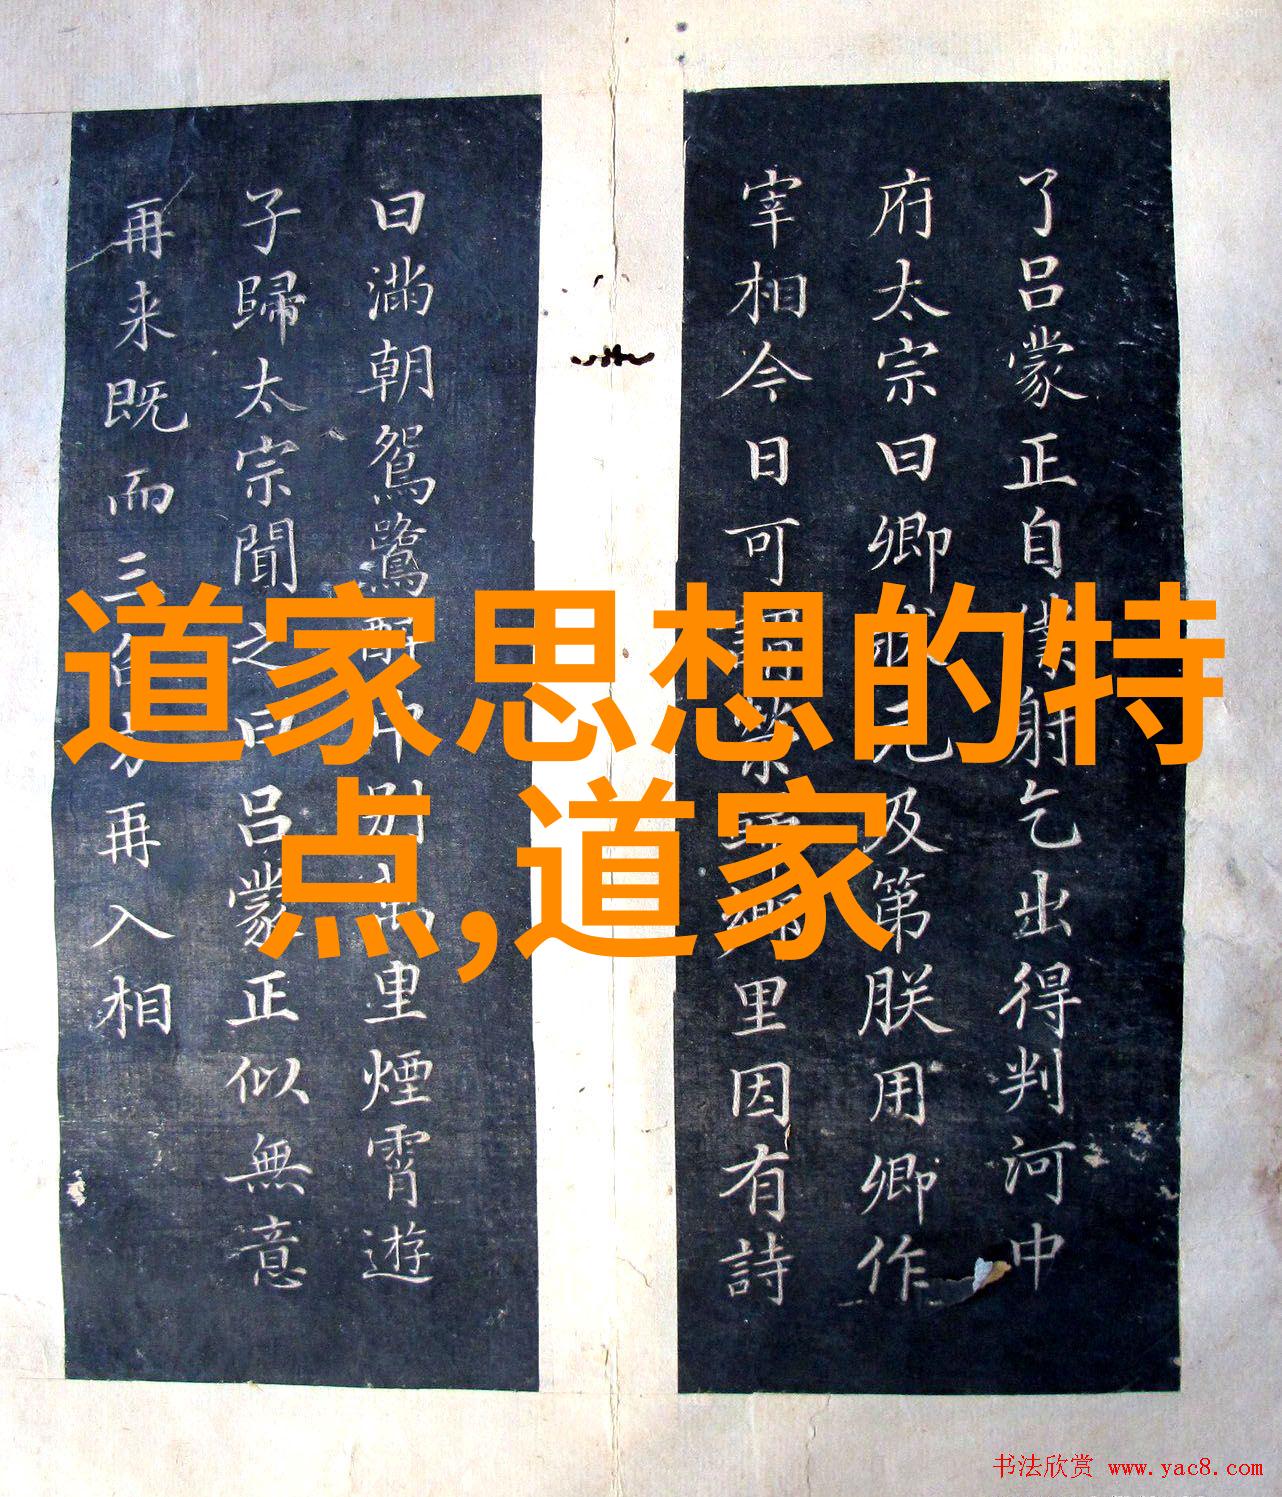 道家思想的特
点,道家
了吕蒙正自僕射乞出得判河中
府太宗曰卿状元及第朕用卿作
宰相今日可謂榮歸鄉里因有詩
曰滿朝鴛鷺醉中别萬里煙霄遊
子歸太宗聞之曰吕蒙正似無意
再来既而三方再入相
书法欣赏 www.yac8.com